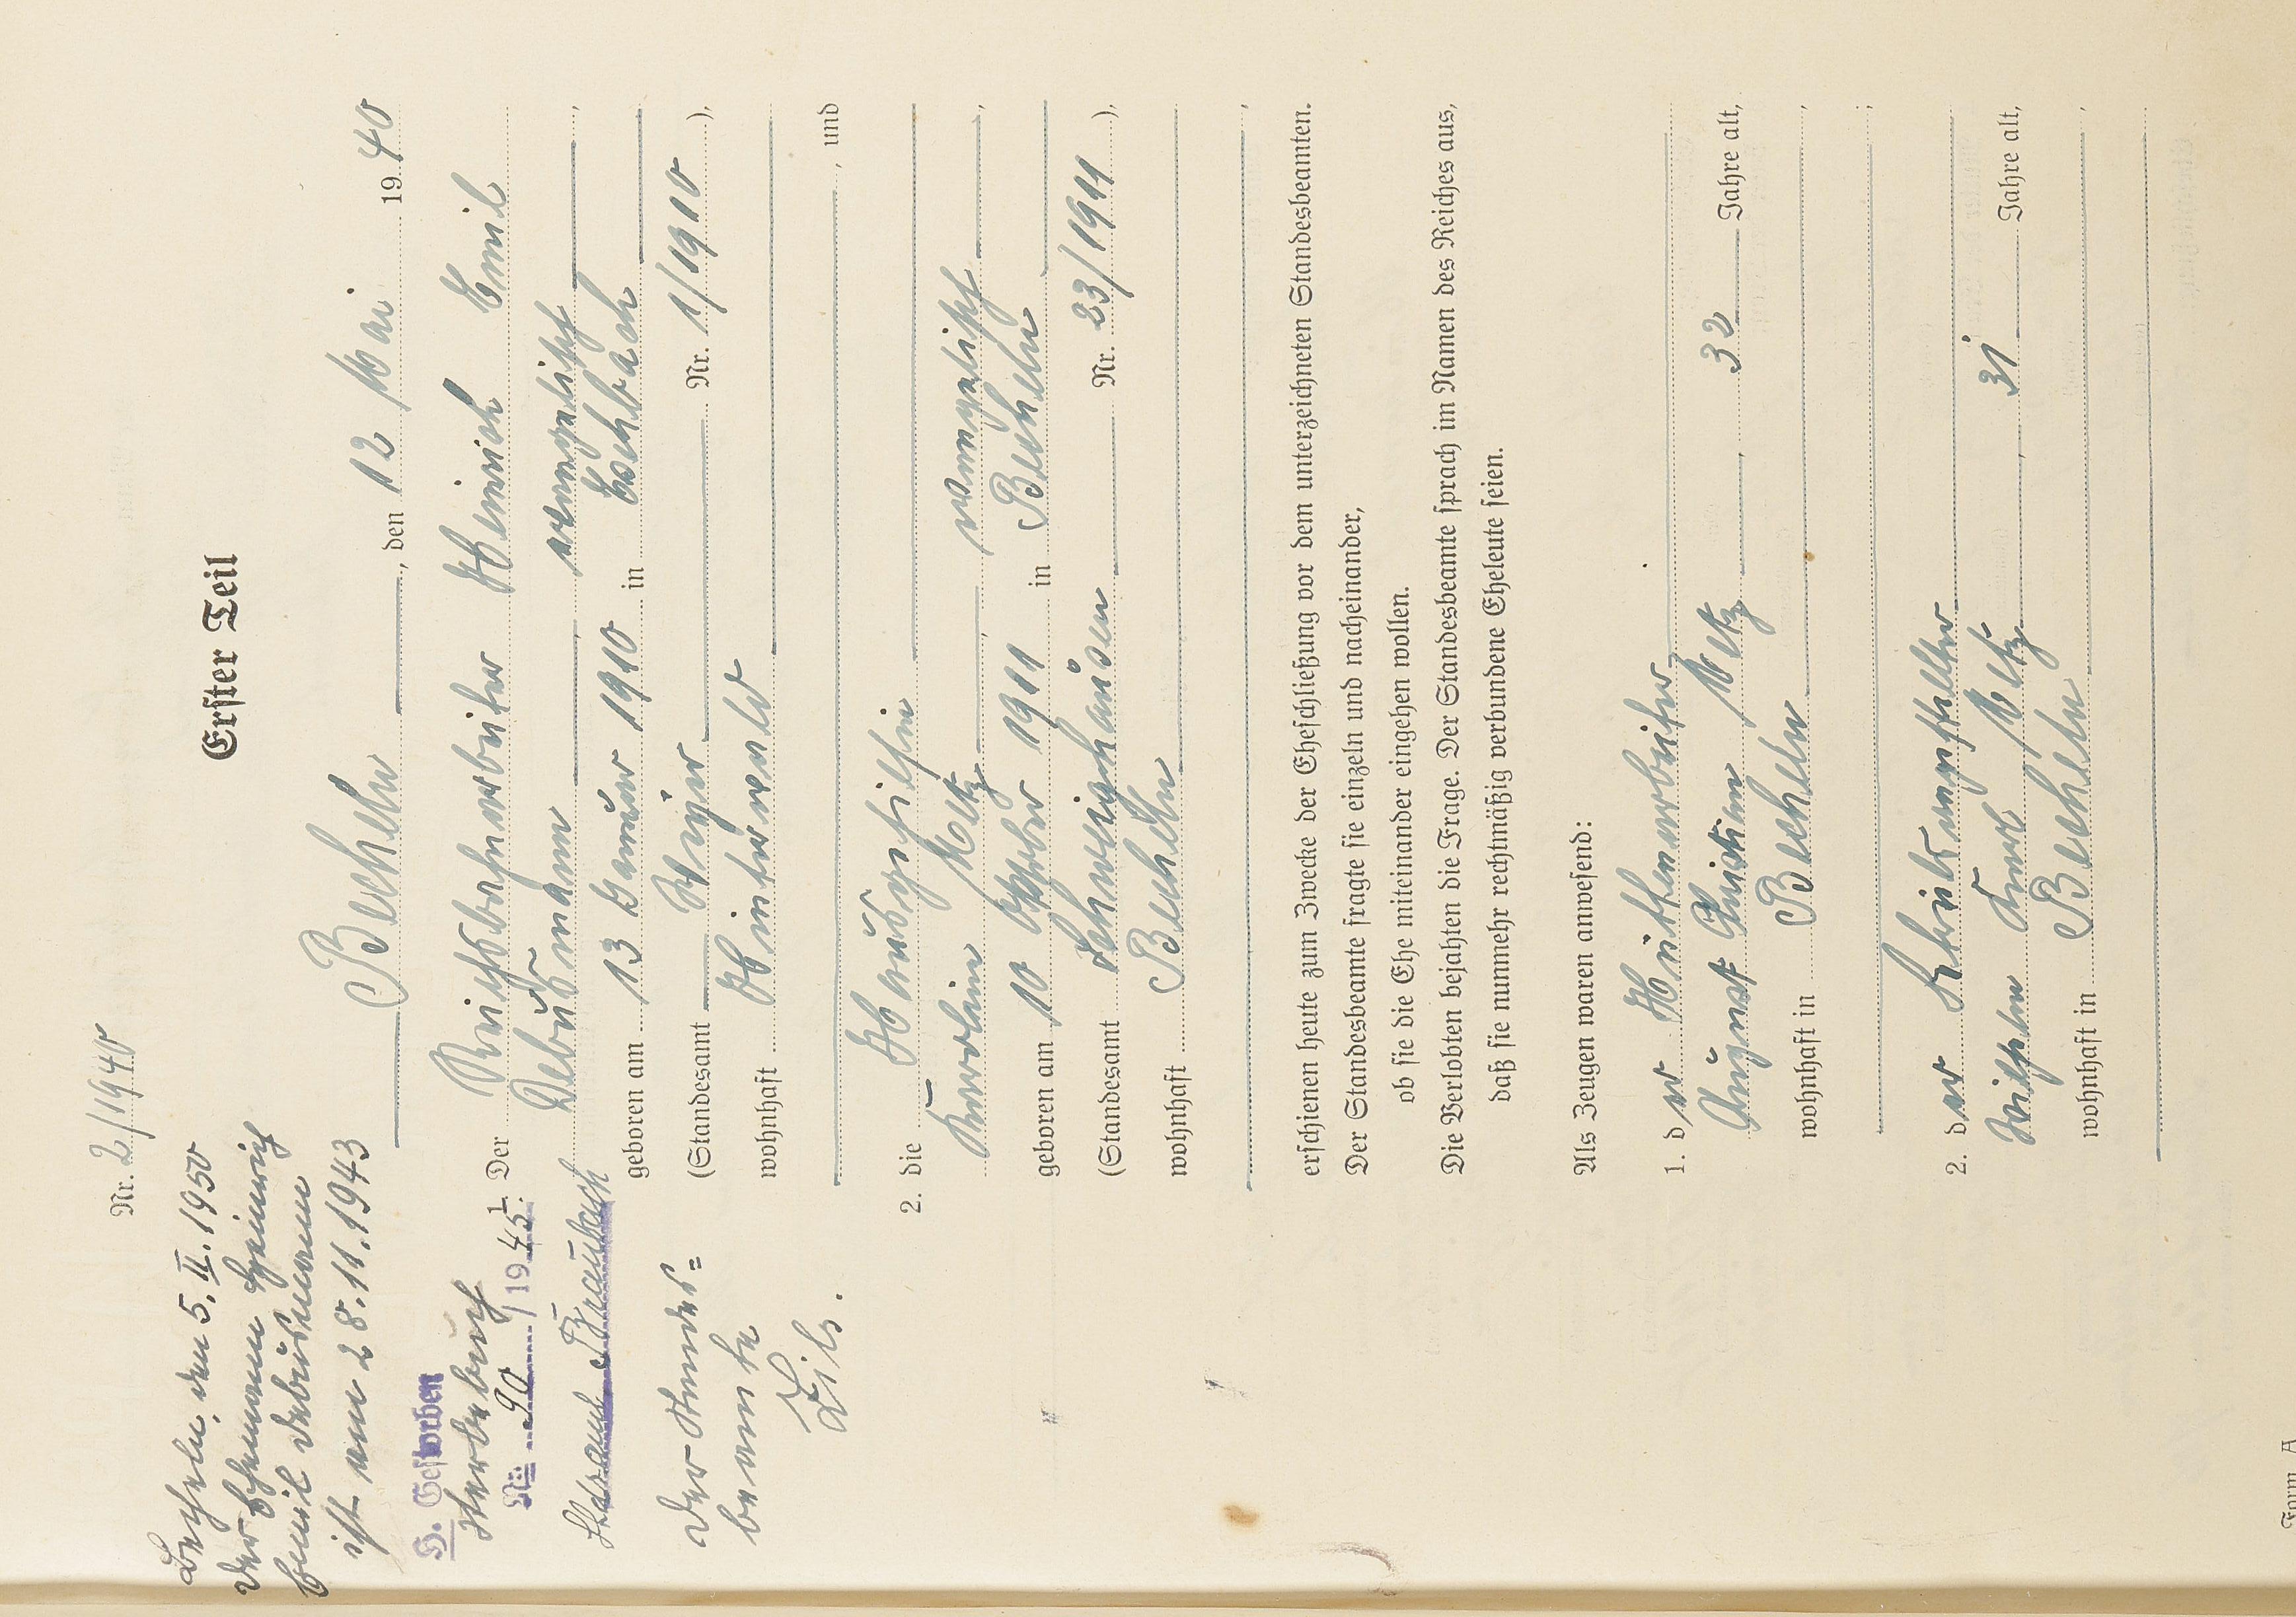 Nr. 2/1940
Erster Teil
Becheln, den 12 Mai 1940
1. Der Reichsbahnarbeiter Heinrich Emil
Debusmann, evangelisch,
geboren am 13 Januar 1910 in Eschbach
(Standesamt Weyer Nr. 1/1910),
wohnhaft Hinterwald
, und
2. die Hausgehilfin
Karoline Metz, evangelisch,
geboren am 10 Oktober 1911 in Becheln
(Standesamt Schweighausen Nr. 23/1911),
wohnhaft Becheln
erschienen heute zum Zwecke der Eheschließung vor dem unterzeichneten Standesbeamten.
Der Standesbeamte fragte sie einzeln und nacheinander,
ob sie die Ehe miteinander eingehen wollen.
Die Verlobten bejahten die Frage. Der Standesbeamte sprach im Namen des Reiches aus,
daß sie nunmehr rechtmäßig verbundene Eheleute seien.
Als Zeugen waren anwesend:
1. der Hüttenarbeiter
August Christian Metz, 32 Jahre alt,
wohnhaft in Becheln,
;
2. der
Wilhelm Karl Metz, 31 Jahre alt,
wohnhaft in Becheln,
Becheln, den 5. II. 1950
Der Ehemann Heinrich
Emil Debusmann
ist am 28.11.1943
H. Gestorben
Sterbebuch
Nr. 90/1945
Standesamt Braubach
Der Standes=
beamte
Form. A